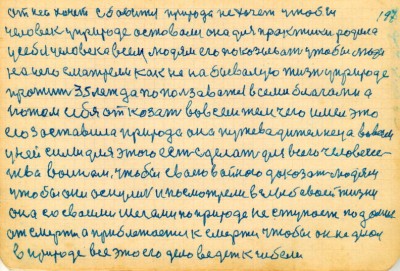 от нея хочет свободится природа не хочет чтобы 197
человек у природе оставали она для практики родила
у себя человека всем людям его показывать чтобы люди
на него смотрели как не на бывалую жизнь у природе
прожит 35 лет да попользавать всеми благами а
потом себя отказать во всем тем чего имел это
его заставила природа она путеводителница во всем
у ней силы для этого ест сделать для всего человече-
ства воином, чтобы своею работою доказат людям
чтобы они оснулис и посмотрели в своей жизни
она со своими шегами по природе не ступает подальше
от смерти а приближается к смерти чтобы он не делал
в природе все это его дело ведет к гибели